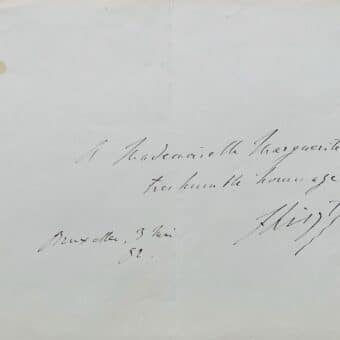 A Mademoiselle Marguerite
très humble hommage
F Liszt
Bruxelles, 3 Mai
82.